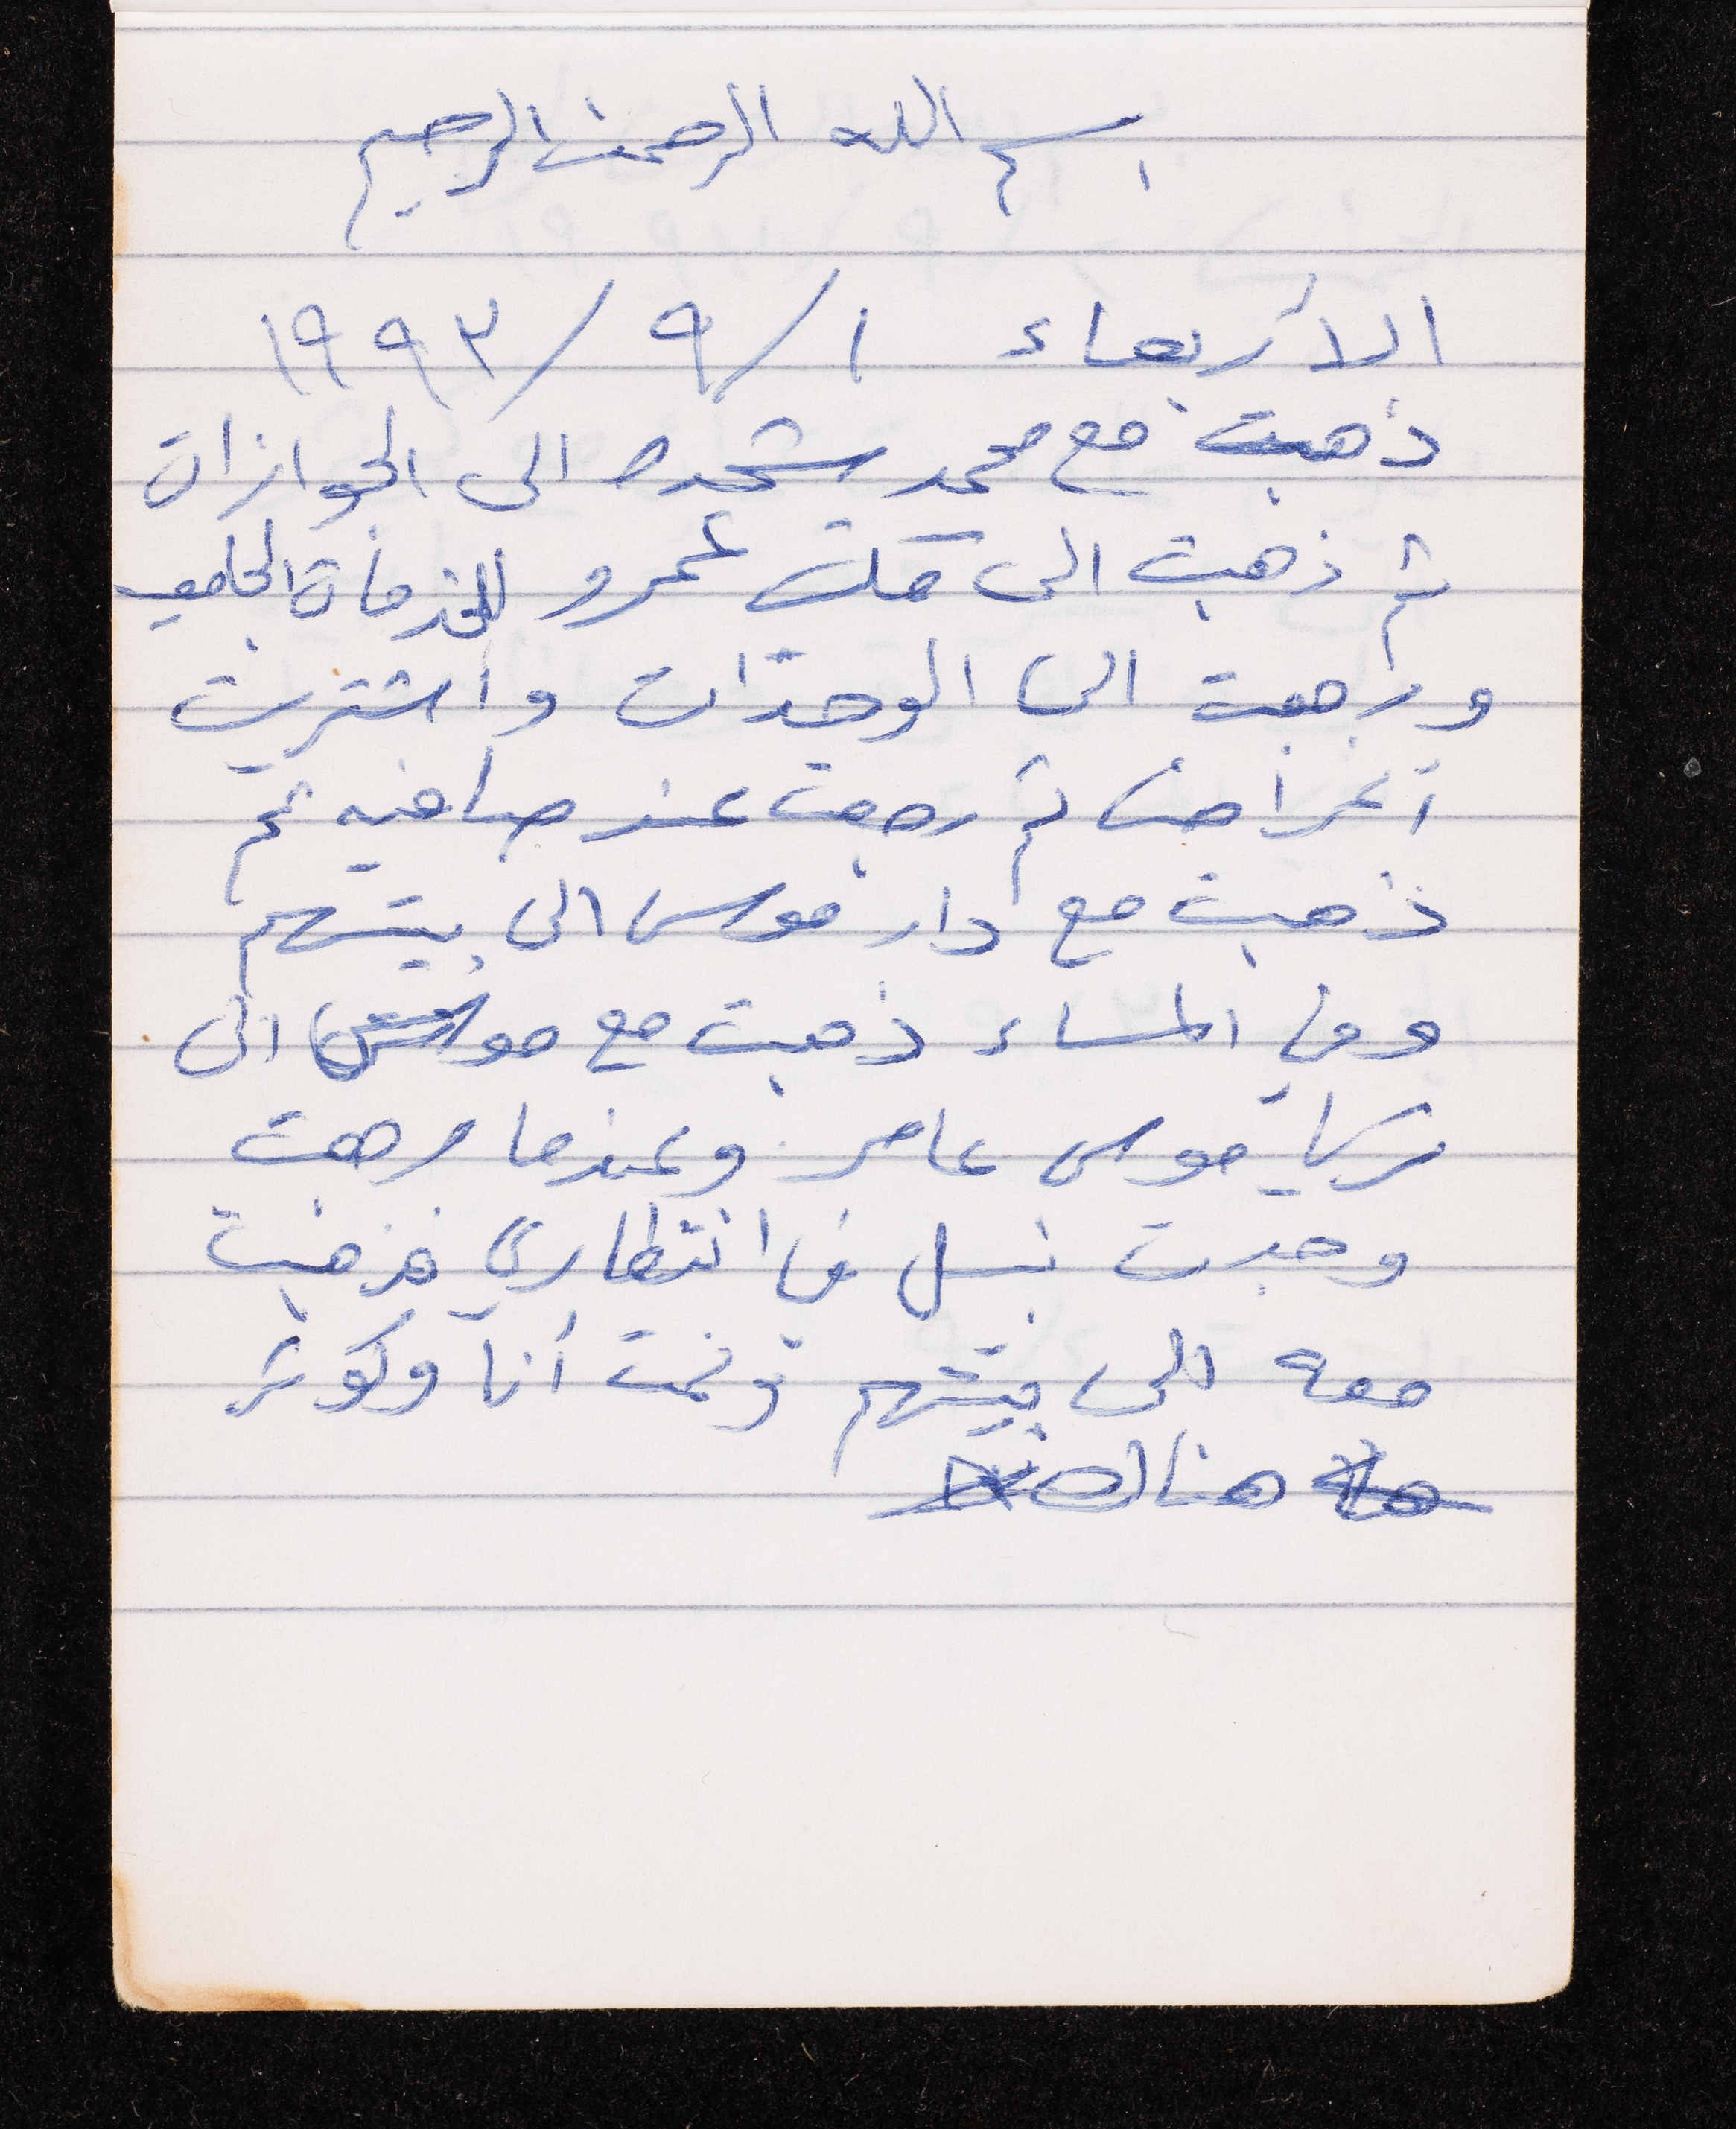 بسم الله الرحمن الرحيم
الأربعاء ١/٩/١٩٩٣
ذهبت مع محمد شحده الى الجوازات
ثم ذهبت الى مكتب عمرو للخدمات الجامعيه
ورجعت الى الوحدات واشتريت
أغراض ثم رجعت عند صافيه ثم
ذهبت مع دار موسى الى بيتهم
وفي المساء ذهبت مع موسى الى
موسى عامر وعندما رجعت
وجدت في انتظاري فذهبت
معه الى بيتهم ونمت أنا وكوثر
هناك